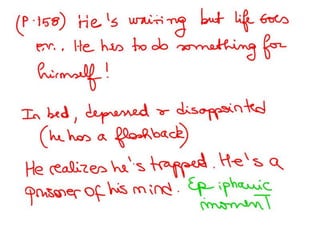 (P.158) He's waiting but life goes
on.. He has to do something for
himself!
In bed, depressed & disappointed
(he has a flashback)
He realizes he's trapped. He's a
prisoner of his mind. Epiphanic
moment